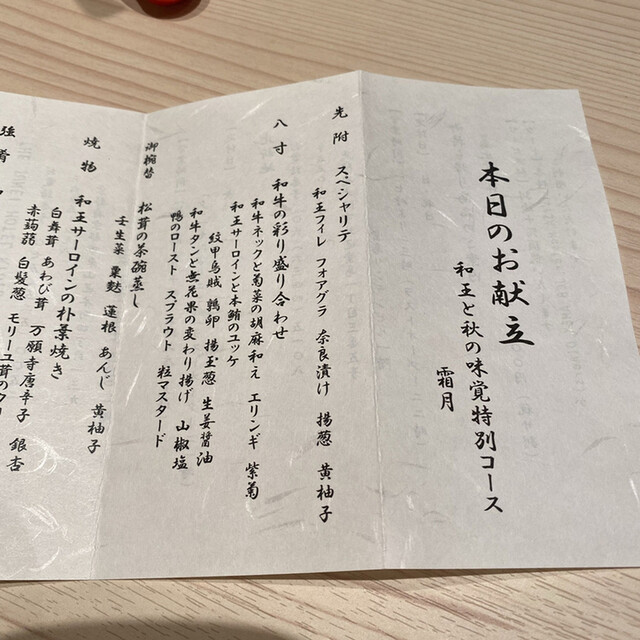 本日のお献立
和王と秋の味覚特別コース
霜月
先附 スペシャリテ
和王フィレ フォアグラ 奈良漬け 揚葱 黄柚子
八寸 和牛の彩り盛り合わせ
和牛ネックと菊菜の胡麻和え エリンギ 紫菊
和王サーロインと本鮪のユッケ
紋甲烏賊 鶉卵 揚玉葱 生姜醤油
和牛タンと無花果の変わり揚げ 山椒塩
鴨のロースト スプラウト 粒マスタード
御椀替 松茸の茶碗蒸し
壬生菜 粟麩 蓮根 あんじ 黄柚子
焼物 和王サーロインの朴葉焼き
白舞茸 あわび茸 万願寺唐辛子 銀杏
赤蒟蒻 白髪葱 モリーユ茸の
強肴